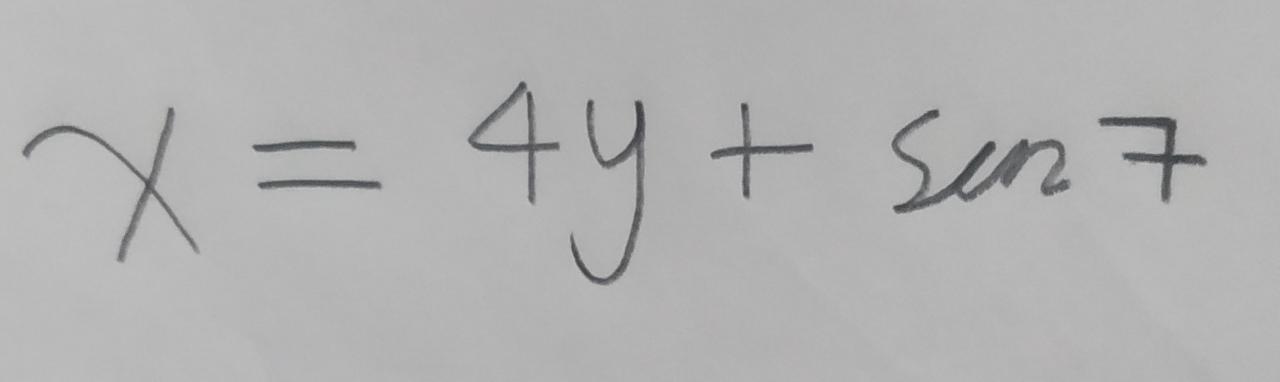 x = 4y + sen 7